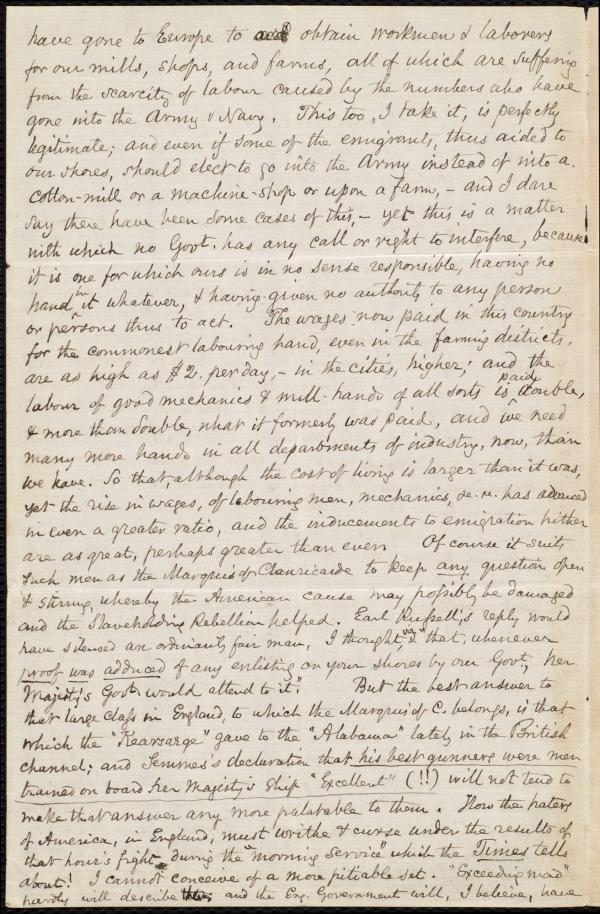 have gone to Europe to obtain workmen & laborers
for our mills, shops, and farms, all of which are suffering
from the scarcity of labour caused by the numbers who have
gone into the Army & Navy. This too, I take it, is perfectly
legitimate; and even if some of the emigrants, thus aided to
our shores, should elect to go into the Army instead of into a
cotton-mill or a machine-shop or upon a farm, - and I dare
say there have been some cases of this, - yet this is a matter
with which no Govt. has any call or right to interfere, because
it is one for which ours is in no sense responsible, having no
hand in it whatever, & having given no authority to any person
or persons thus to act. The wages now paid in this country
for the commonest labouring hand, even in the farming districts,
are as high as $2. per day, - in the cities, higher; and the
labour of good mechanics & mill-hands of all sorts is paid double,
& more than double, what it formerly was paid, and we need
many more hands in all departments of industry, now, than
we have. So that, although the cost of living is larger than it was,
yet the rise in wages, of labouring men, mechanics, &c. &c. has advanced
in even a greater ratio, and the inducements to emigration hither
are as great, perhaps greater than ever. Of course it suits
such men as the Marquis of Clanricarde to keep any question open
& stirring, whereby the American cause may possibly be damaged
and the Slaveholding Rebellion helped. Earl Russell's reply would
have silenced an ordinarily fair man, I thought, viz. "that, whenever
proof was adduced of any enlisting on your shores by our Govt., her
Majesty's Govt. would attend to it." But the best answer to
that large class in England, to which the Marquis of C. belongs, is that
which the "Kearsarge" gave to the "Alabama" lately in the British
channel; and Semmes's declaration that his best gunners were men
trained on board her Majesty's Ship "Excellent" (!!) will not tend to
make that answer any more palatable to them. How the haters
of America, in England, must writhe & curse under the results of
that hour's fight during the "morning service" which the Times tells
about! I cannot conceive of a more pitiable set. "Exceeding mad"
hardly will describe them and the Eng. Government will, I believe, have